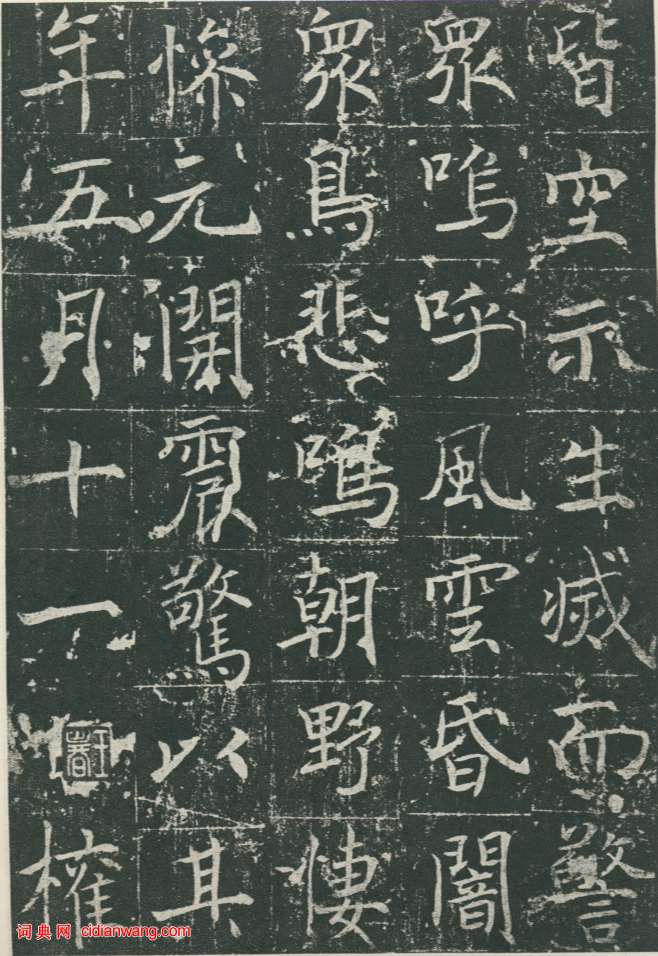 皆空示生滅而警
眾嗚呼風雲昏闇
眾鳥悲鳴朝野悽
慘元震驚以其
年五月十一權
词典网 cidianwang.com